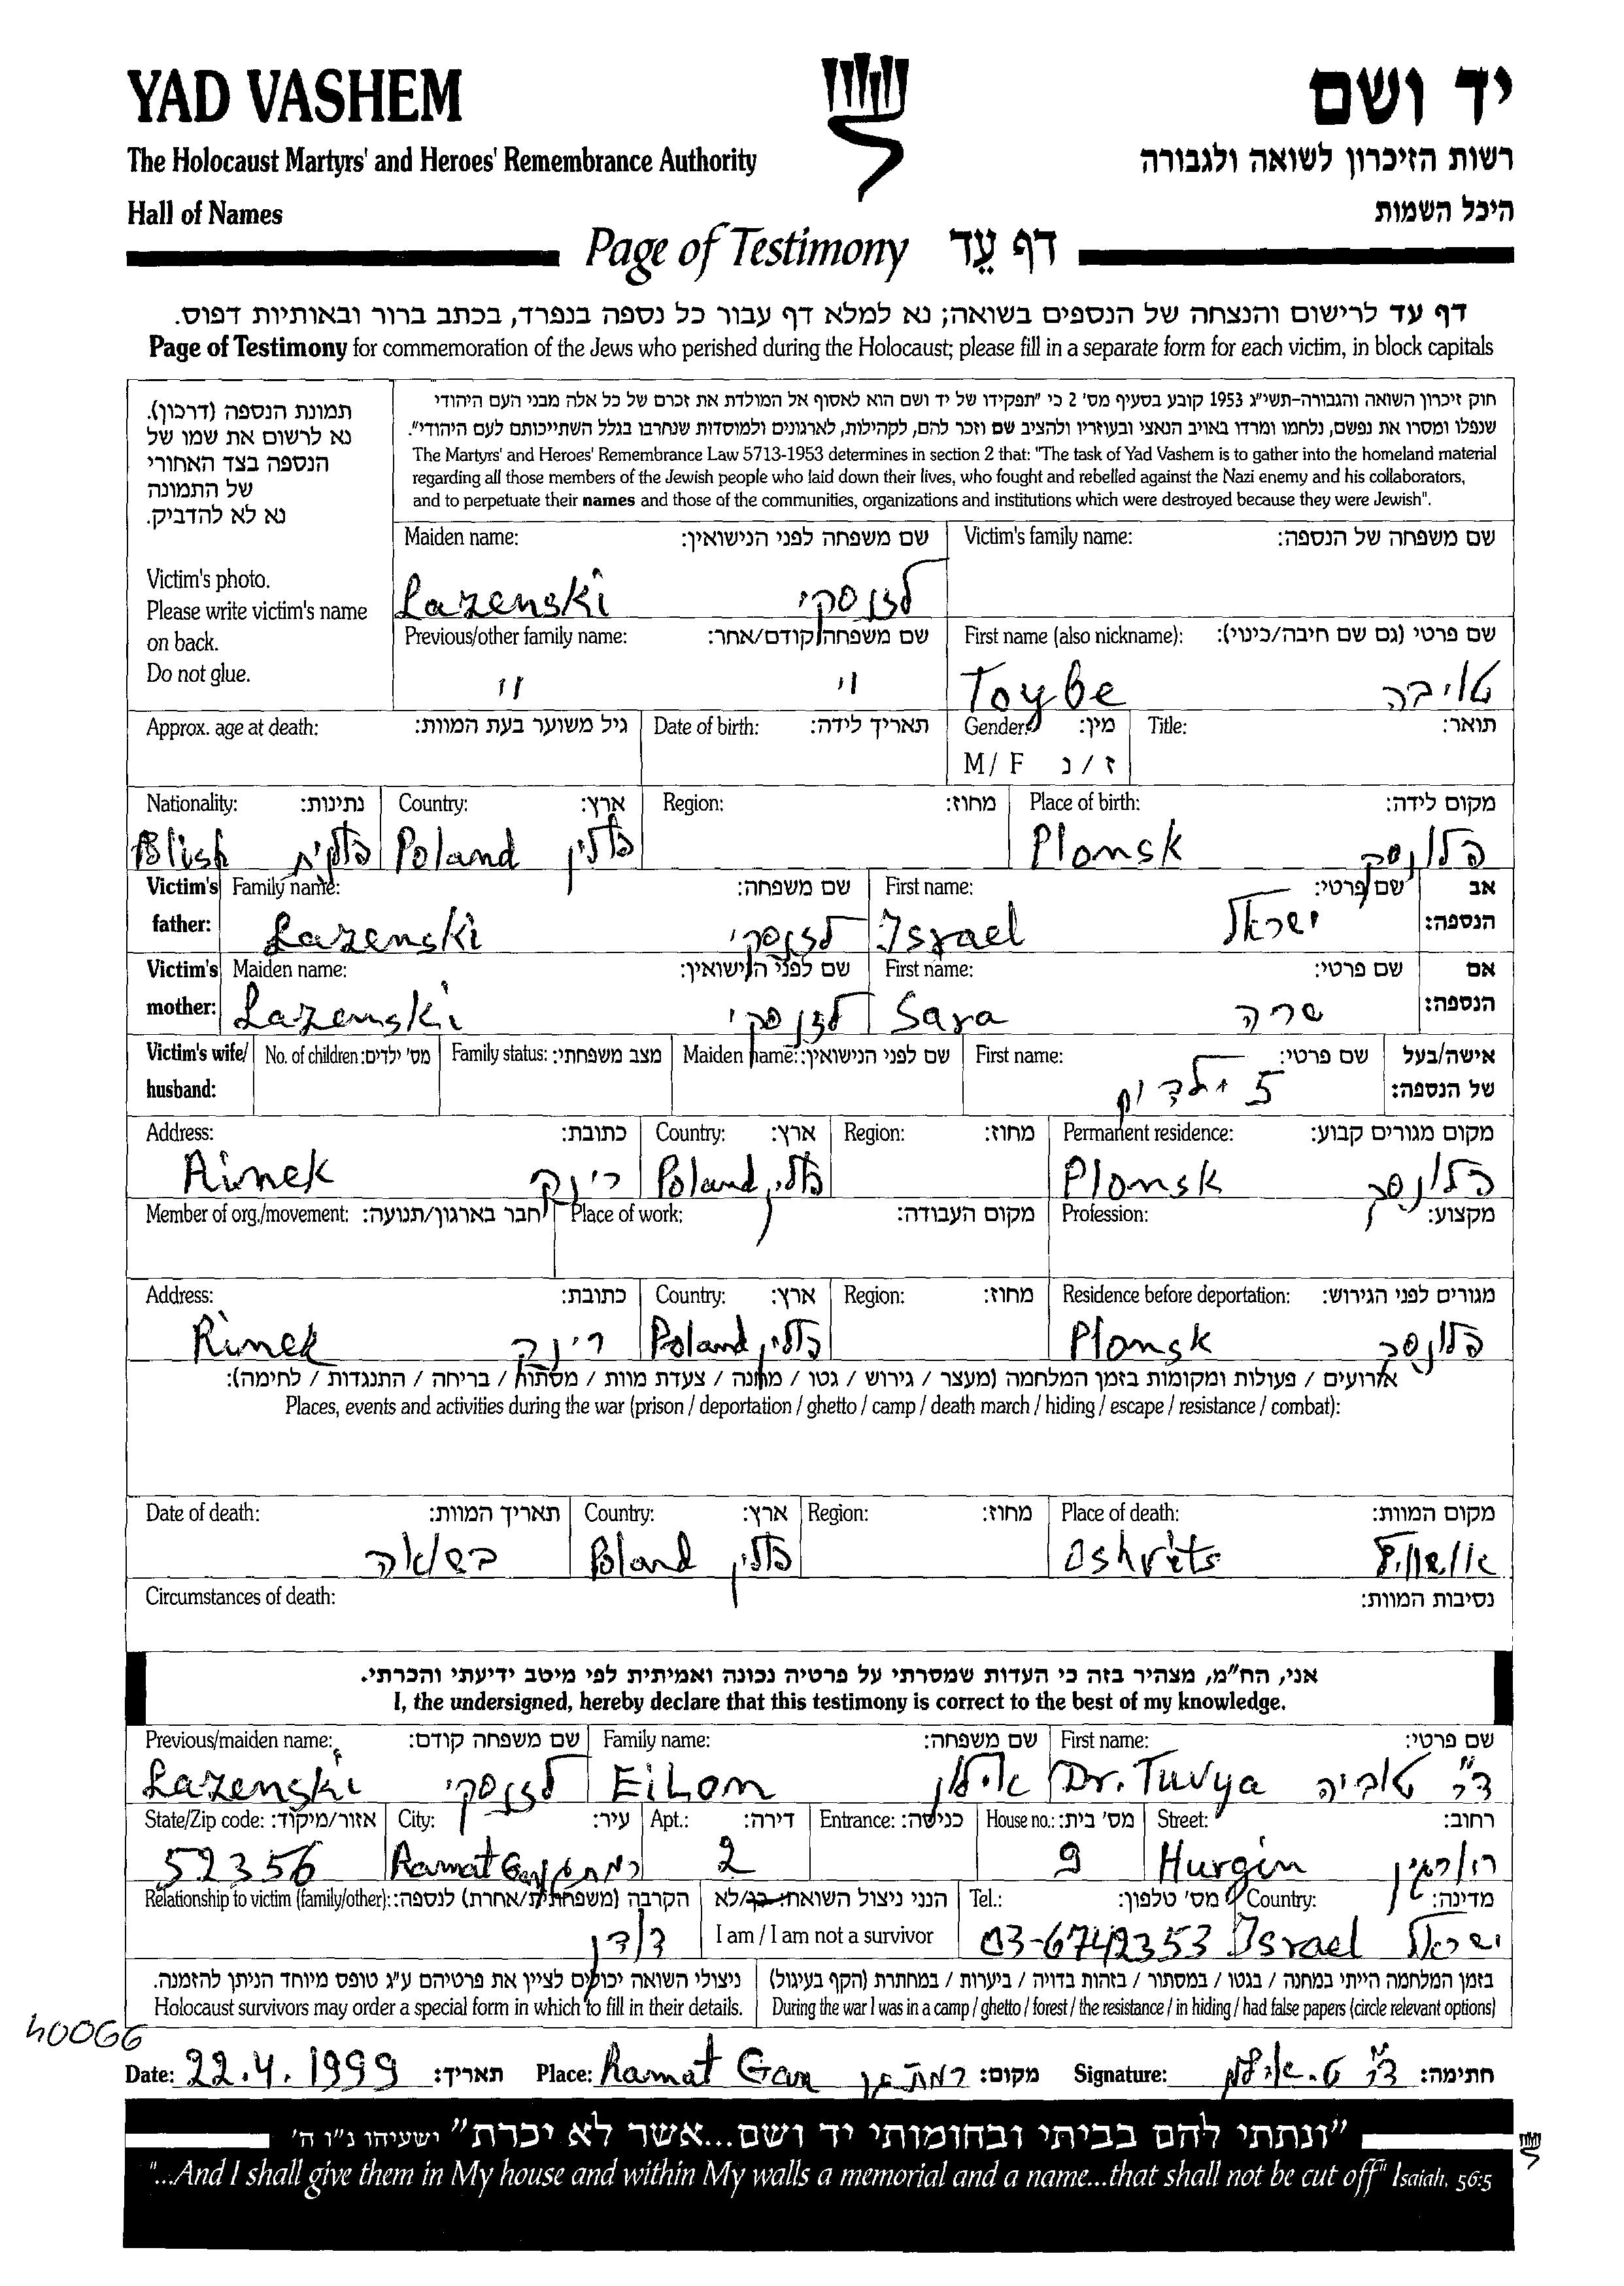 YAD VASHEM יד ושם
The Holocaust Martyrs' and Heroes' Remembrance Authority רשות הזיכרון לשואה ולגבורה
Hall of Names היכל השמות
Page of Testimony דף עֵד
דף עד לרישום והנצחה של הנספים בשואה; נא למלא דף עבור כל נספה בנפרד, בכתב ברור ובאותיות דפוס.
Page of Testimony for commemoration of the Jews who perished during the Holocaust; please fill in a separate form for each victim, in block capitals
תמונת הנספה (דרכון).
נא לרשום את שמו של
הנספה בצד האחורי
של התמונה
נא לא להדביק.
Victim's photo.
Please write victim's name
on back.
Do not glue.
חוק זיכרון השואה והגבורה-תשי״ג 1953 קובע בסעיף מס׳ 2 כי ״תפקידו של יד ושם הוא לאסוף אל המולדת את זכרם של כל אלה מבני העם היהודי
שנפלו ומסרו את נפשם, נלחמו ומרדו באויב הנאצי ובעוזריו ולהציב שם וזכר להם, לקהילות, לארגונים ולמוסדות שנחרבו בגלל השתייכותם לעם היהודי״.
The Martyrs' and Heroes' Remembrance Law 5713-1953 determines in section 2 that: "The task of Yad Vashem is to gather into the homeland material
regarding all those members of the Jewish people who laid down their lives, who fought and rebelled against the Nazi enemy and his collaborators,
and to perpetuate their names and those of the communities, organizations and institutions which were destroyed because they were Jewish".
Maiden name: שם משפחה לפני הנישואין: Victim's family name: שם משפחה של הנספה:
Lazenski לזנסקי
Previous/other family name: שם משפחה קודם/אחר: First name (also nickname): שם פרטי (גם שם חיבה/כינוי):
״ ״ Toybe טויבה
Approx. age at death: גיל משוער בעת המוות: Date of birth: תאריך לידה: Gender: מין: Title: תואר:
M/ F ז/נ
Nationality: נתינות: Country: ארץ: Region: מחוז: Place of birth: מקום לידה:
Polish פולנית Poland פולין Plonsk פלונסק
Victim's father: Family name: שם משפחה: First name: שם פרטי: אב הנספה:
Lazenski לזנסקי Israel ישראל
Victim's mother: Maiden name: שם לפני הנישואין: First name: שם פרטי: אם הנספה:
Lazenski לזנסקי Sara שרה
Victim's wife/ husband: No. of children: מס׳ ילדים: Family status: מצב משפחתי: Maiden name: שם לפני הנישואין: First name: שם פרטי: אישה/בעל של הנספה:
5
Address: כתובת: Country: ארץ: Region: מחוז: Permanent residence: מקום מגורים קבוע:
Rinek רינק Poland פולין Plonsk פלונסק
Member of org./movement: חבר בארגון/תנועה: Place of work: מקום העבודה: Profession: מקצוע:
Address: כתובת: Country: ארץ: Region: מחוז: Residence before deportation: מגורים לפני הגירוש:
Rinek רינק Poland פולין Plonsk פלונסק
אירועים / פעולות ומקומות בזמן המלחמה (מעצר / גירוש / גטו / מחנה / צעדת מוות / מסתור / בריחה / התנגדות / לחימה):
Places, events and activities during the war (prison / deportation / ghetto / camp / death march / hiding / escape / resistance / combat):
Date of death: תאריך המוות: Country: ארץ: Region: מחוז: Place of death: מקום המוות:
בשואה Poland פולין Oshvits
Circumstances of death: נסיבות המוות:
אני, הח״מ, מצהיר בזה כי העדות שמסרתי על פרטיה נכונה ואמיתית לפי מיטב ידיעתי והכרתי.
I, the undersigned, hereby declare that this testimony is correct to the best of my knowledge.
Previous/maiden name: שם משפחה קודם: Family name: שם משפחה: First name: שם פרטי:
Lazenski לזנסקי Eilon אילון Dr. Tuvya ד״ר טוביה
State/Zip code: אזור/מיקוד: City: עיר: Apt.: דירה: Entrance: כניסה: House no.: מס׳ בית: Street: רחוב:
52356 Ramat Gan רמת גן 2 9 Hurgin חורגין
Relationship to victim (family/other): הקרבה (משפחתית/אחרת) לנספה: הנני ניצול השואה: כן/לא Tel.: מס׳ טלפון: Country: מדינה:
דודן I am / I am not a survivor 03-6742353 Israel ישראל
ניצולי השואה יכולים לציין את פרטיהם ע״ג טופס מיוחד הניתן להזמנה. בזמן המלחמה הייתי במחנה / בגטו / במסתור / בזהות בדויה / ביערות / במחתרת (הקף בעיגול)
Holocaust survivors may order a special form in which to fill in their details. During the war I was in a camp / ghetto / forest / the resistance / in hiding / had false papers (circle relevant options)
40066
Date: 22.4.1999 תאריך: Place: Ramat Gan רמת גן מקום: Signature: ד״ר ט. אילון חתימה:
״ונתתי להם בביתי ובחומותי יד ושם...אשר לא יכרת״ ישעיהו נ״ו ה׳
"...And I shall give them in My house and within My walls a memorial and a name...that shall not be cut off" Isaiah, 56:5